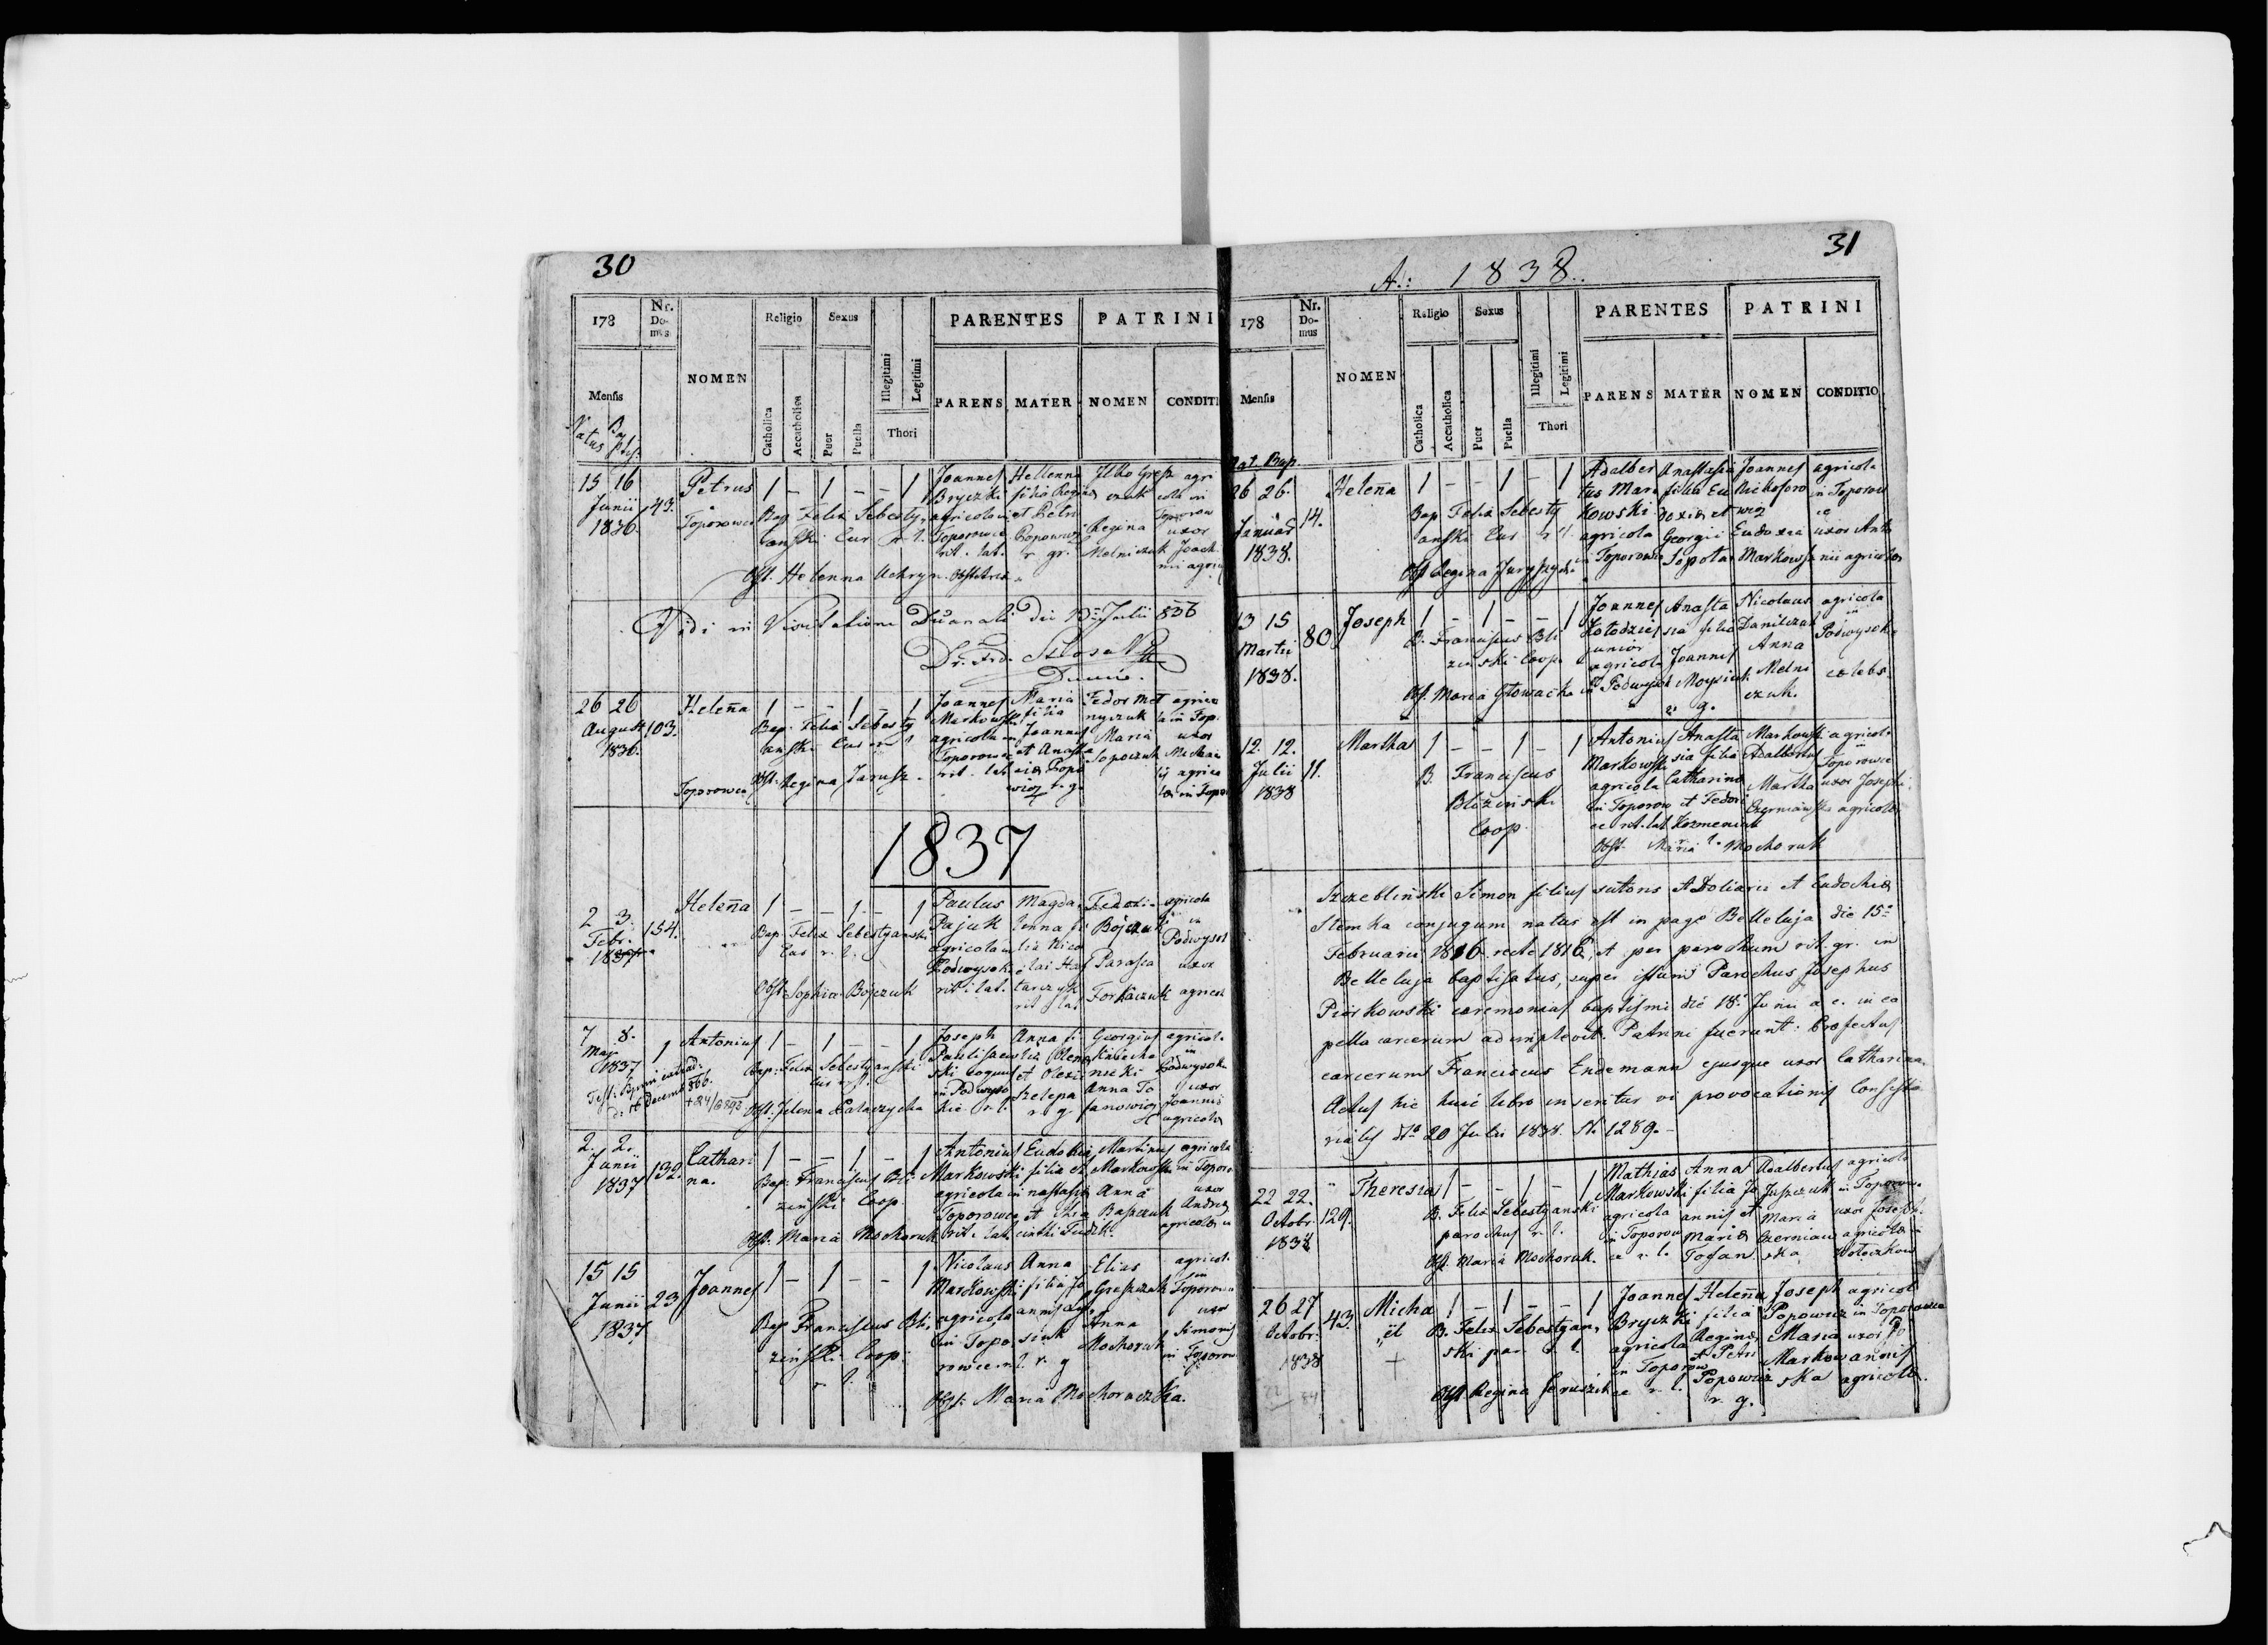 30
178
Nr. Do- mus
NOMEN
Religio
Sexus
Illegitimi
Legitimi
PARENTES
PATRINI
Mensis
Catholica
Accatholica
Puer
Puella
Thori
PARENS
MATER
NOMEN
CONDITI
Natus Bapts.
15 16
Junii
1836.
43.
Petrus
Toporowce
1 – 1 – – 1
Bap Felix Sebesty
anski Cur r. l.
Joannes
Bryczki
agricola in
Toporowce
rit. lat.
Hellenna
filia Regina
et Petri
Popowicz
r. gr.
Ilko Gresz
czuk
Regina
Melniczuk
agri
cola in
Toporow
uxor
Joach
mi agric
Obst. Helenna Achryn. Obstetrix
Vidi in Visitatione Decanali die 13 Julii 836
26 26
August
1836.
103.
Helena
Toporowce
1 – – 1 – 1
Bap. Felix Sebesty
anski Cur r. l.
Joannes
Markowski
agricola in
Toporowce
rit. lat.
Maria
filia
Joannes
et Anasta
sia Popo
wicz r. g.
Fedor Mel
nyczuk
Maria
Sopoczuk
agrico
la in Top.
uxor
Michai
li agrico
lae in Topo
Obst. Regina Jarusz.
1837
2 3.
Febr.
1837
154.
Helena
1 – – 1 – 1
Bap. Felix Sebestyanski
Cur r. l.
Paulus
Pajuk
agricola in
Podwysoki
rit. lat.
Magda
lenna fi
lia Nico
lai Ha
tarczuk
rit lat
Bojczuk
Parasca
Torkaczuk
agricola
in
Podwysok
uxor
agricol
Obst. Sophia Bojczuk
7 8.
Maji
1837
1
Antonius
1 – 1 – – 1
Bap. Felix Sebestyanski
Cur r. l.
Joseph
Pauliszews
ski coquus
in Podwyso
kie r. l.
Anna fi
lia Olena
et Olexi
Szelepa
r. g.
Georgius
Anna To
fanowicz
agricola
in
Podwysok
uxor
Joannis
agricola
2. 2.
Junii
1837
132.
Cathari
na.
1 – – 1 – 1
Bap. Franciscus Bli
zinski Coop.
Antonius
Markowski
agricola in
Toporowce
rit. lat.
Eudokia
filia A
nastasia
et
Martinus
Markowski
Anna
Baszczuk
agricola
in Toporo
uxor
Andreas
agricolae in
Obst. Maria Mochoruk
15 15
Junii
1837
23
Joannes
1 – 1 – – 1
Bap Franciscus Bli
zinski Coop.
r. l.
Nicolaus
Markowski
agricola
in Topo
rowce r. l.
Anna
filia Jo
annis
r. g
Elias
Greszczuk
Anna
Mochoruk
agricol.
in
Toporow
uxor
Simonis
in Toporow
Obst. Maria Mochoraczka.
A.: 1838.
31
178
Nr. Do- mus
NOMEN
Religio
Sexus
Illegitimi
Legitimi
PARENTES
PATRINI
Mensis
Catholica
Accatholica
Puer
Puella
Thori
PARENS
MATER
NOMEN
CONDITIO
Nat. Bap.
26 26.
Januar
1838.
14.
Helena
1 – – 1 – 1
Bap Felix Sebesty
anski Cur r. l.
Adalber
tus Mar
kowski
agricola
in Toporowce
Anastasia
filia Eu
doxia et
Georgii
Sopota
Joannes
Nickoforo
wicz
Eudoxia
Markowsk
agricola
in Toporow
ce
uxor Anto
nii agricolae
Obst Regina
13 15
Martii
1838.
80
Joseph
1 – 1 – – 1
B. Franciscus Bli
zinski Coop.
Joannes
Kołodziej
junior
agricola
in Podwysok
Anasta
sia filia
Joannes
Moysiuk
r. g.
Nicolaus
Danilczuk
Anna
Melni
czuk.
agricola
in
Podwysok
coelebs
Obst. Maria Głowacka
12. 12.
Julii
1838
11.
Martha
1 – – 1 – 1
B. Franciscus
Blizinski
Coop.
Antonius
Markowski
agricola
in Toporow
ce rit. lat.
Anasta
sia filia
Catharina
et Fedori
Kozmeniuk
Markowski
Adalbertus
Martha
Czerniawska
agricol.
in
Toporowce
uxor Josephi
agricolae
Obst. Maria Mochoruk
Szczeblinski Simon filius sutoris et Doliarii et Eudochia
Slemka conjugum natus est in pago Belleluja die 15a
Februarii 1816 recte 1816, et per parochum rit. gr. in
Belleluja baptisatus, super istum Parochus Josephus
Piorkowski ceremonias baptismi die 18. Junii a. c. in ca
pella carcerum adimplevit. Patrini fuerunt: Profectus
carcerum Franciscus Endemann ejusque uxor Catharina.
Actus hic huic libro inseritur vi provocationis Consisto
rialis dto 20 Julii 1838. N. 1289.
22 22.
Octobr.
1838
129.
Theresia
1 – – 1 – 1
B. Felix Sebestyanski
parochus r. l.
Mathias
Markowski
agricola
in Toporow
ce r. l.
Anna
filia Jo
annis et
Maria
Tofan
Adalbertus
Juszczuk
Maria
Czerniaw
ska
agricola
in Toporow.
uxor Joseph.
agricolae in
Wołoczkow
Obst. Maria Mochoruk.
26 27
Octobr.
1838
43.
Micha
el
1 – 1 – – 1
B. Felix Sebestyan
ski par. r. l.
Joannes
Bryczki
agricola
in Toporow
ce r. l.
Helena
filia
Regina
et Petri
Popowicz
r. g.
Joseph
Popowicz
Maria
Markow
ska
agricol
in Toporowce
uxor Jo
annis
agricolae.
Obst Regina Jaruszik